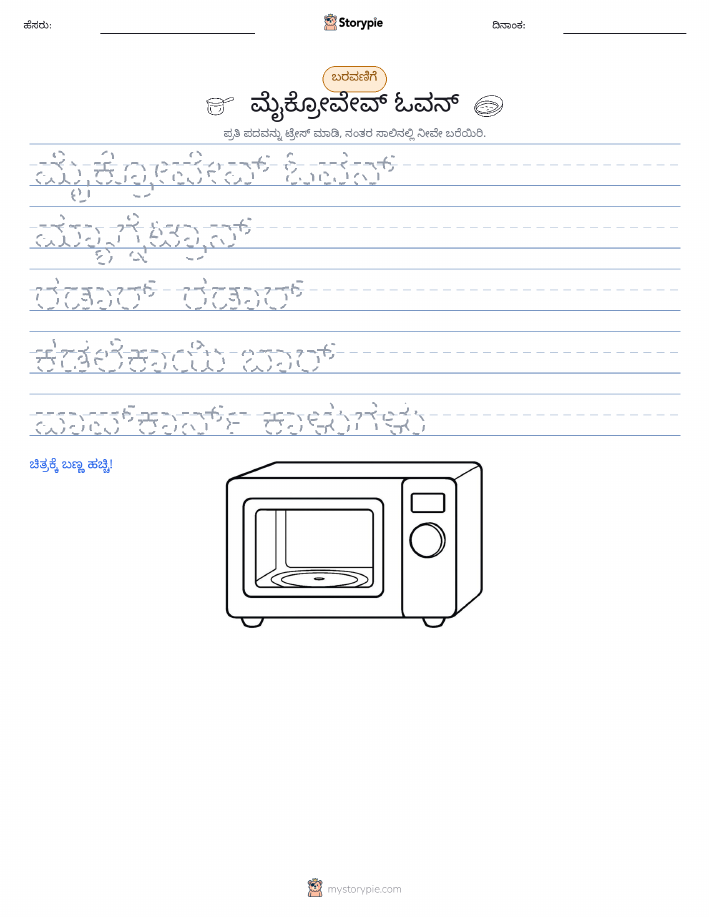 ಹೆಸರು:
Storypie
ದಿನಾಂಕ:
ಬರವಣಿಗೆ
ಮೈಕ್ರೋವೇವ್ ಓವನ್
ಪ್ರತಿ ಪದವನ್ನು ಟ್ರೇಸ್ ಮಾಡಿ, ನಂತರ ಸಾಲಿನಲ್ಲಿ ನೀವೇ ಬರೆಯಿರಿ.
ಮೈಕ್ರೋವೇವ್ ಓವನ್
ಮ್ಯಾಗ್ನೆಟ್ರಾನ್
ರೆಡಾರ್ ರೆಡಾರ್
ಕಡಲೆಕಾಯಿ ಬಾರ್
ಪಾಪ್‌ಕಾರ್ನ್ ಕಾಳುಗಳು
ಚಿತ್ರಕ್ಕೆ ಬಣ್ಣ ಹಚ್ಚಿ!
mystorypie.com